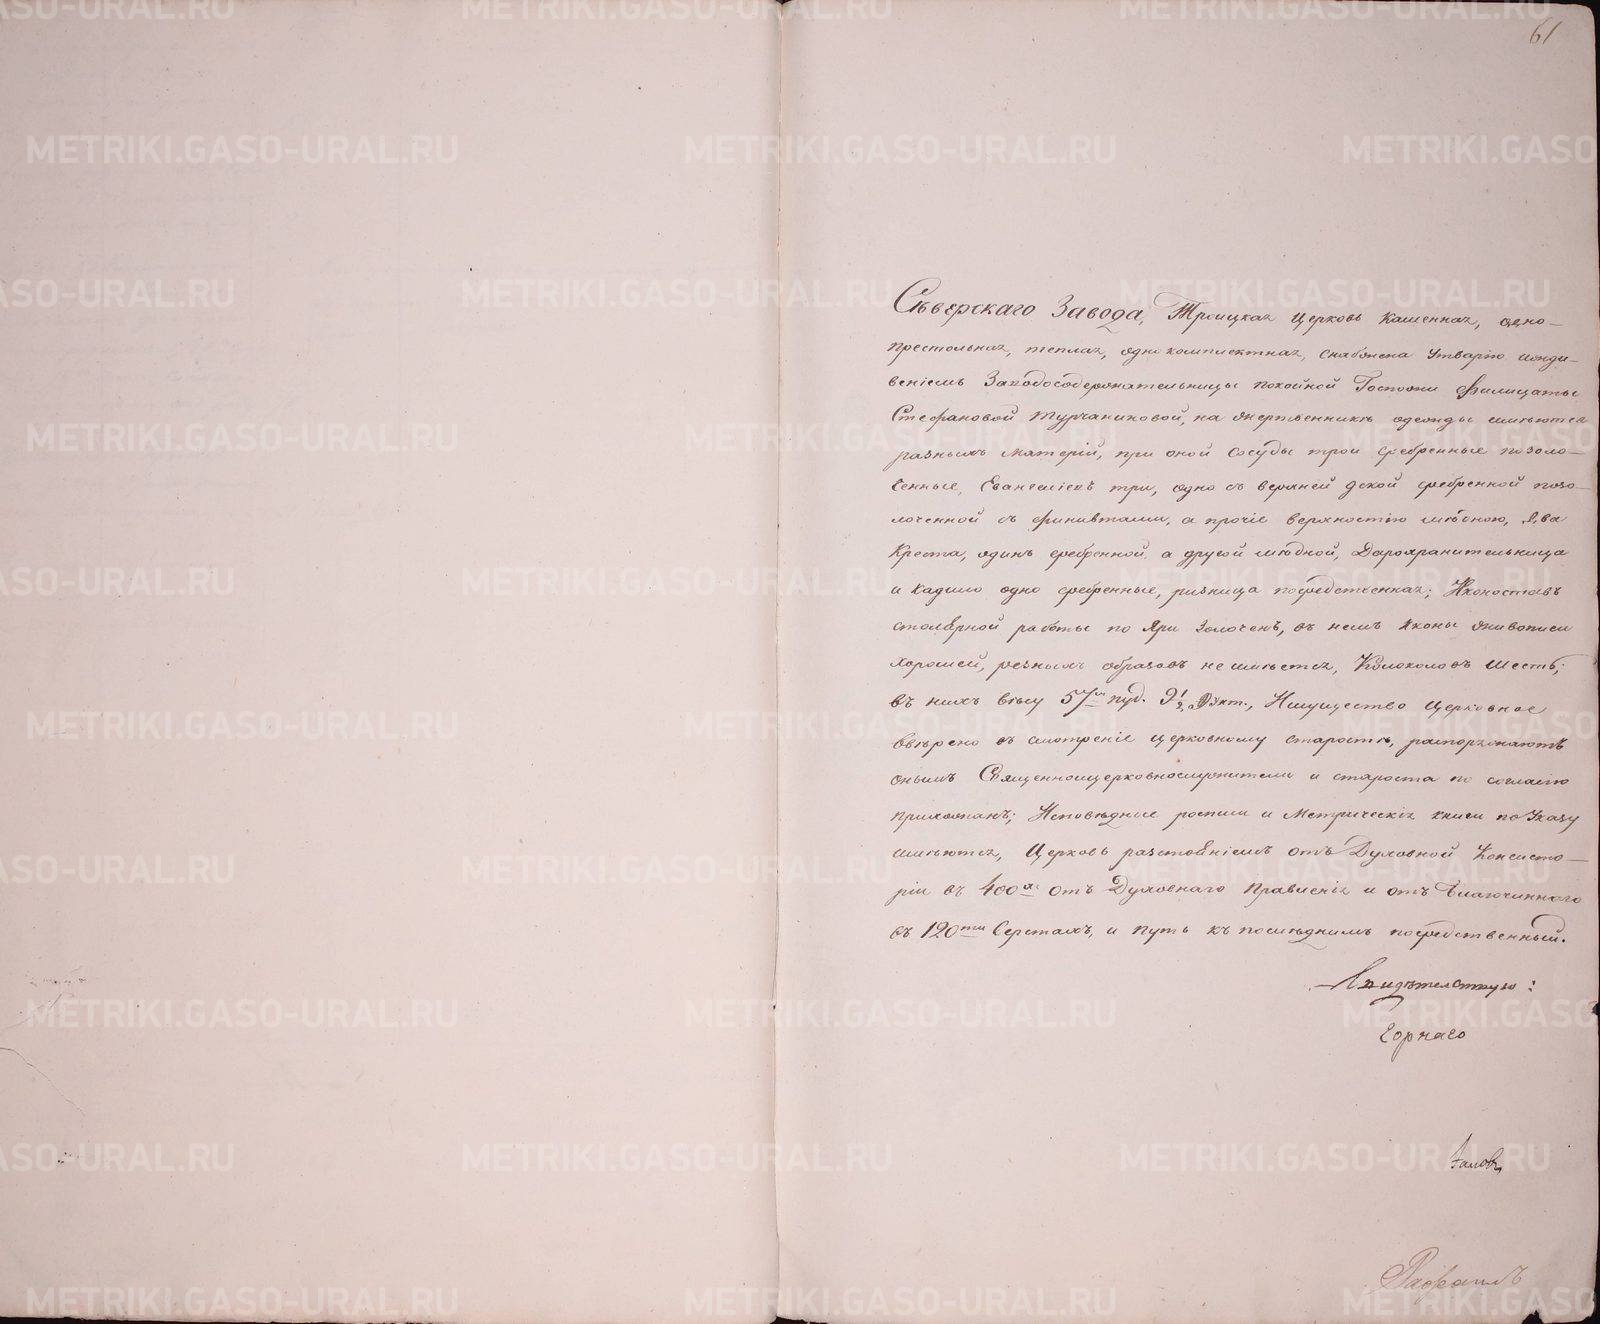 61
Сѣверскаго Завода, Троицкая Церковь каменная, одно-
престольная, теплая, однокомплектная, снабжена утварію ижди-
веніемъ Заводосодержательницы покойной Госпожи Филицаты
Стефановой Турчаниновой, на жертвенникѣ одежды имѣются
разныхъ матерій, при оной сосуды трои сребренные позоло-
ченные, Евангеліевъ три, одно съ верхней дской сребренной позо-
лоченной съ финивтами, а прочіе верхностію мѣдною, два
Креста, одинъ сребренной а другой мѣдной, Дарохранительница
и кадило одно сребренные, ризница посредственная; Иконостасъ
столярной работы по яри золоченъ, въ немъ иконы живописи
хорошей, резныхъ образовъ не имѣется, Колоколовъ шесть;
въ нихъ вѣсу 57 пуд. 9 1/2 Фунт., Имущество Церковное
ввѣрено въ смотреніе церковному старостѣ, распоряжаютъ
онымъ Священноцерковнослужители и староста по согласію
прихожанъ; Исповѣдные росписи и Метрическія книги по Указу
имѣются, Церковь разстояніемъ отъ Духовной Консисто-
ріи въ 400х отъ Духовнаго Правленія и отъ Благочиннаго
въ 120ти верстахъ, и путь къ послѣднимъ посредственный.
Свидѣтелствую:
Горнаго
METRIKI.GASO-URAL.RU